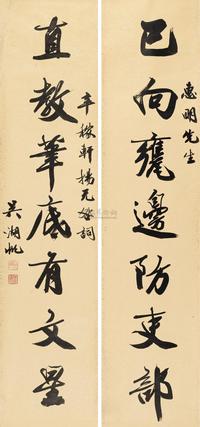 惠明先生
已向甕邊防吏部
直教筆底有文星
辛稼軒楊元咎詞
吳湖帆